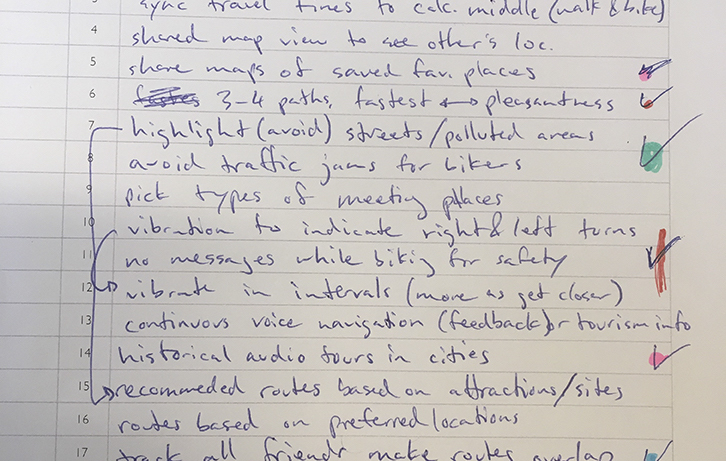 sync travel times to calc. middle (walk & bike)
4 shared map view to see other's loc.
5 share maps of saved fav. places
6 3-4 paths, fastest ↔ pleasantness
7 highlight (avoid) streets/polluted areas
8 avoid traffic jams for bikers
9 pick types of meeting places
10 vibration to indicate right & left turns
11 no messages while bikig for safety
12 vibrate in intervals (more as get closer)
13 continuous voice navigation (feedback) or tourism info
14 historical audio tours in cities
15 recommeded routes based on attractions/sites
16 routes based on preferred locations
17 track all friends make routes overlap